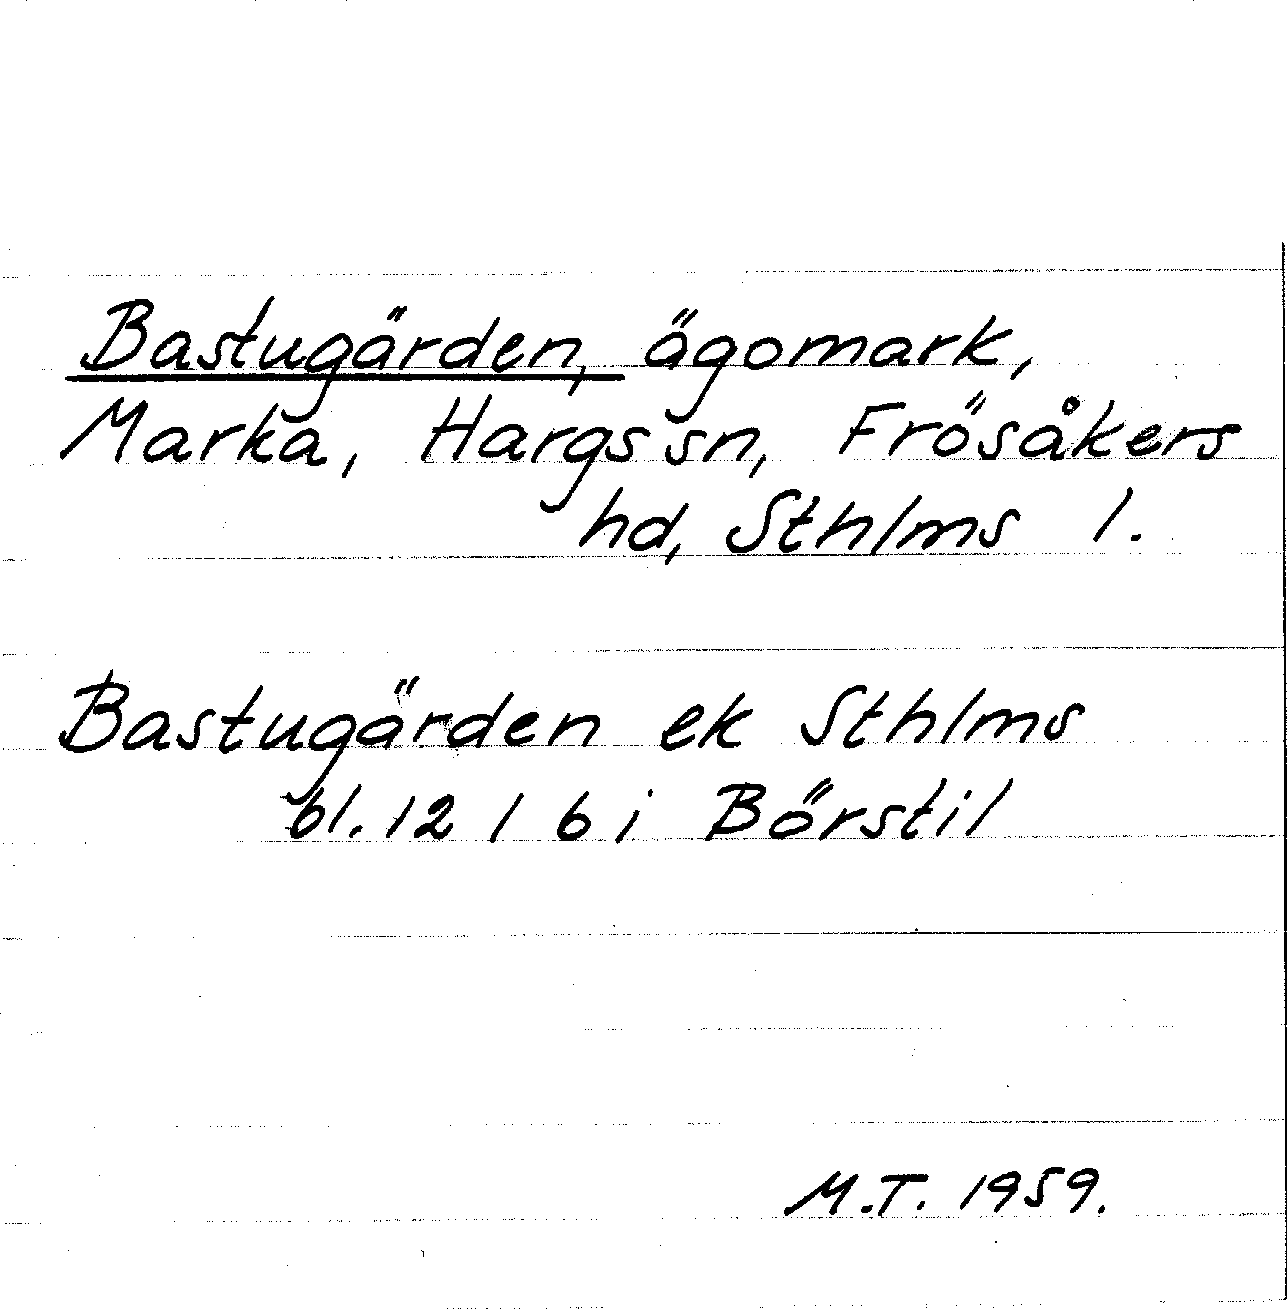 Bastugärden, ägomark,
Marka, Hargs sn, Frösåkers
hd, Sthlms l.
Bastugärden ek Sthlms
bl. 12 l 6 i Börstil
M.T. 1959.